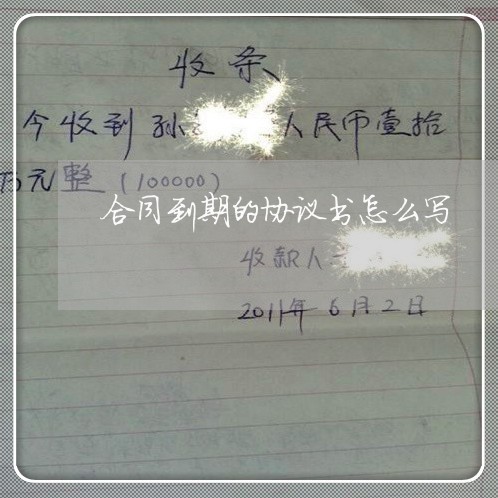 收条
今收到孙 人民币壹拾
万元整(100000)
合同到期的协议书怎么写
收款人
2011年6月2日